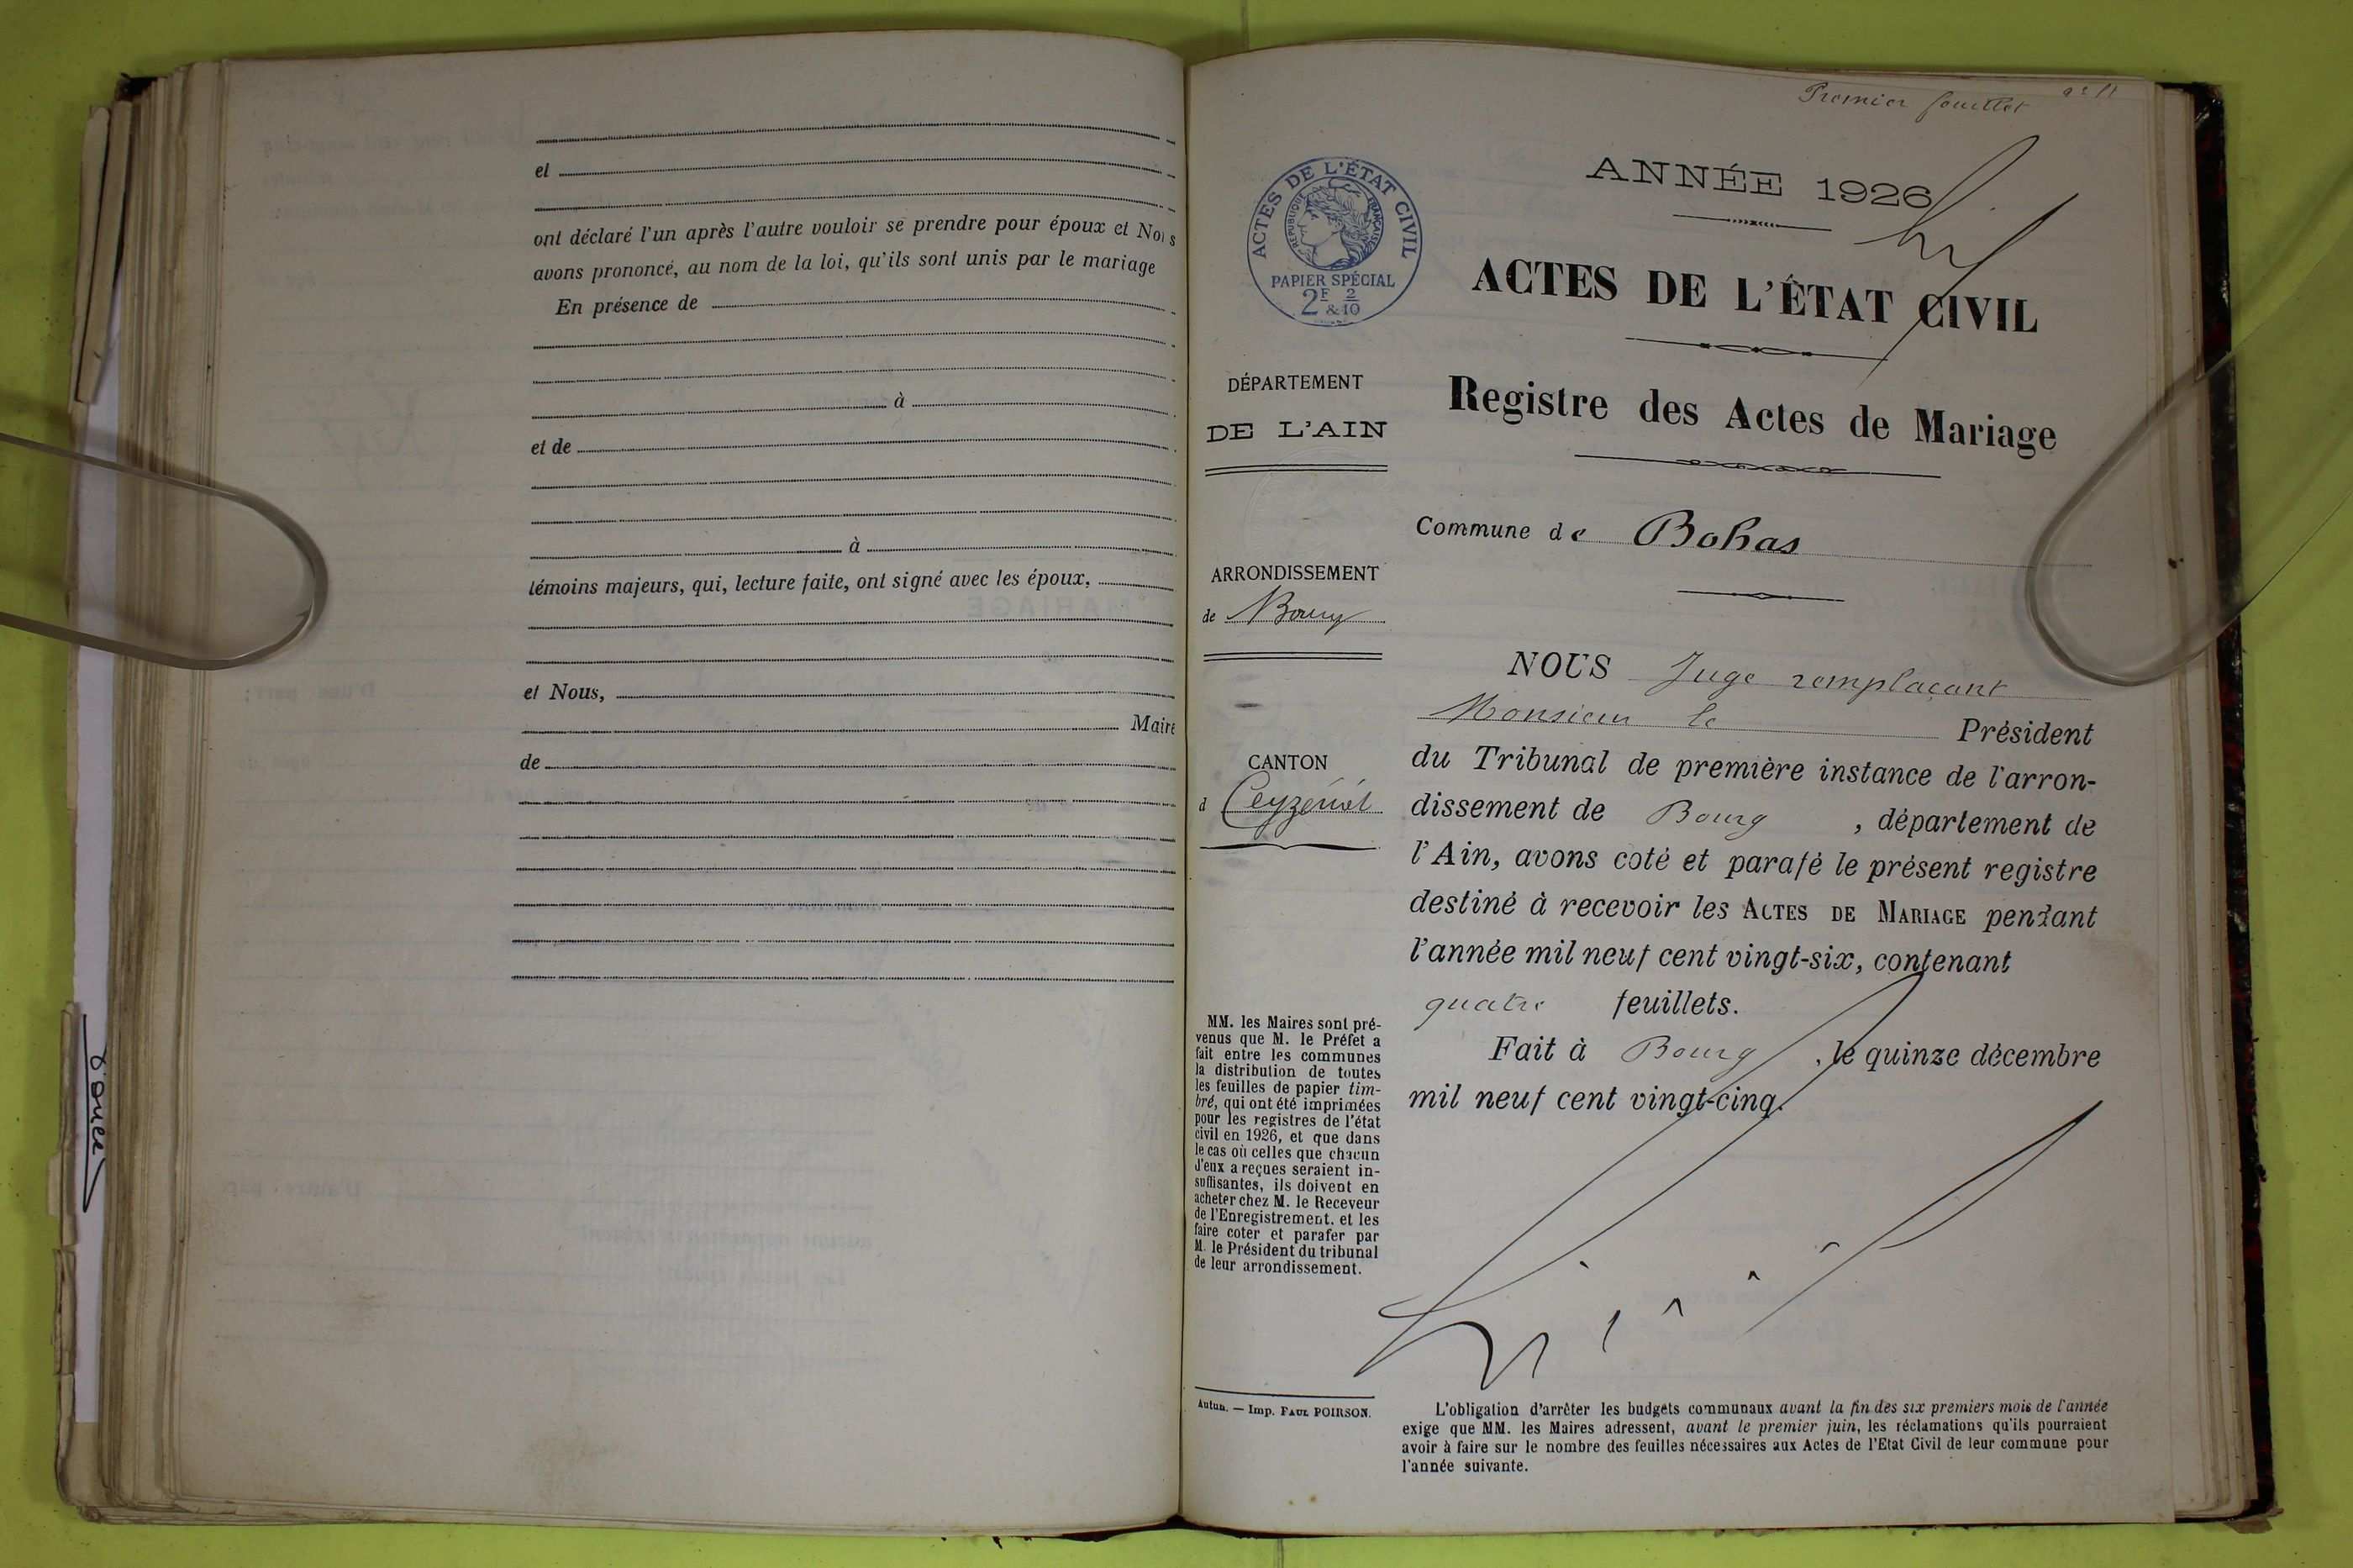 et
ont déclaré l'un après l'autre vouloir se prendre pour époux et Nous
avons prononcé, au nom de la loi, qu'ils sont unis par le mariage
En présence de
à
et de
à
témoins majeurs, qui, lecture faite, ont signé avec les époux,
et Nous,
Maire
de
Premier feuillet
ANNÉE 1926
ACTES DE L'ÉTAT CIVIL
RÉPUBLIQUE FRANÇAISE
PAPIER SPÉCIAL
2F 2
& 10
ACTES DE L'ÉTAT CIVIL
Registre des Actes de Mariage
DÉPARTEMENT
DE L'AIN
Commune de Bohas
ARRONDISSEMENT
de Bourg
CANTON
d Ceyzériat
NOUS Juge remplaçant
Monsieur le Président
du Tribunal de première instance de l'arron-
dissement de Bourg , département de
l'Ain, avons coté et parafé le présent registre
destiné à recevoir les ACTES DE MARIAGE pendant
l'année mil neuf cent vingt-six, contenant
quatre feuillets.
Fait à Bourg , le quinze décembre
mil neuf cent vingt-cinq.
MM. les Maires sont pré-
venus que M. le Préfet a
fait entre les communes
la distribution de toutes
les feuilles de papier tim-
bré, qui ont été imprimées
pour les registres de l'état
civil en 1926, et que dans
le cas où celles que chacun
d'eux a reçues seraient in-
suffisantes, ils doivent en
acheter chez M. le Receveur
de l'Enregistrement, et les
faire coter et parafer par
M. le Président du tribunal
de leur arrondissement.
Autun. — Imp. PAUL POIRSON.
L'obligation d'arrêter les budgets communaux avant la fin des six premiers mois de l'année
exige que MM. les Maires adressent, avant le premier juin, les réclamations qu'ils pourraient
avoir à faire sur le nombre des feuilles nécessaires aux Actes de l'Etat Civil de leur commune pour
l'année suivante.